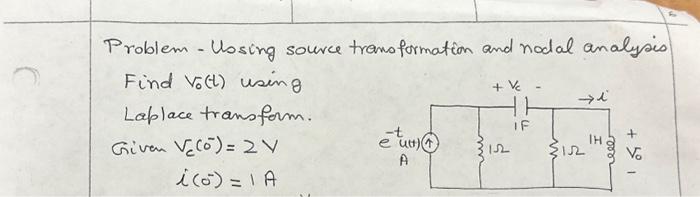 Problem - Uosing source transformation and nodal analysis
Find Vo(t) using
Laplace transform.
Given Vc(0⁻) = 2 V
i(0⁻) = 1 A
+ Vc -
→i
1F
e⁻ᵗu(t) ↑
A
1Ω
1Ω
1H
+
Vo
-